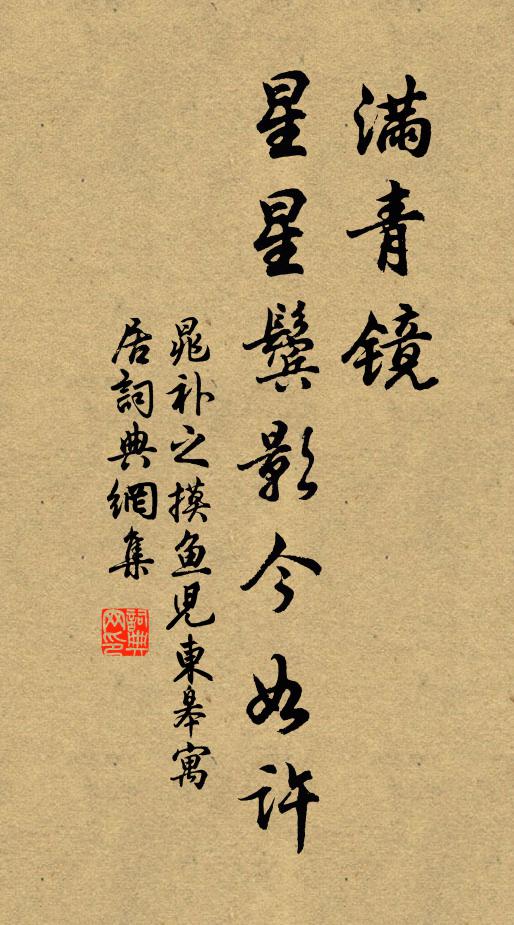 满青镜
星星鬓影今如许
晁补之摸鱼儿東皋寓
居詞典網集
詞典
网印